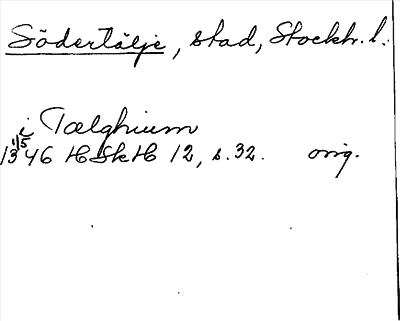 Södertälje, stad, Stockh. l.
i Tælghium
11/5
1346 HSkH 12, s. 32. orig.